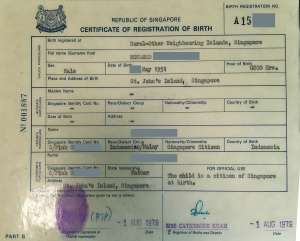 BIRTH REGISTRATION NO.
REPUBLIC OF SINGAPORE
A15
CERTIFICATE OF REGISTRATION OF BIRTH
Birth registered at
Rural-Other Neighbouring Islands, Singapore
Full name (Surname first)
Sex
Male
Date of Birth
May 1958
Hour of Birth
Hrs.
Place and Address of Birth
St. John's Island, Singapore
Maiden Name
Singapore Identity Card No.
Race/Dialect Group
Nationality/Citizenship
Country of Birth
Name
Singapore Identity Card No.
Race/Dialect Group
Nationality/Citizenship
Country of Birth
Indonesian/Malay
Singapore Citizen
Indonesia
Name
FOR OFFICIAL USE
Singapore Identity Card No.
Father
The child is a citizen of Singapore
at birth.
Address
St. John's Island, Singapore
- 1 AUG 1979
- 1 AUG 1979
MRS CATHERINE
Registrar of Births and Deaths
Date
PART B